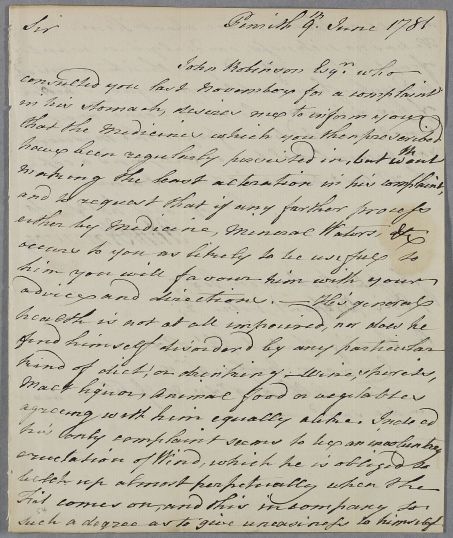 Sir Penrith 9th. June 1781
John Robinson Esqr. who
consulted you last November for a complaint
in his Stomach, desires me to inform you
that the Medicines which you then prescribed
have been regularly persisted in, but without
making the least alteration in his complaint,
and to request that if any farther process
either by Medicine, Mineral Waters, &c
occurs to you as likely to be useful to
him you will favour him with your
advice and directions. — His general
health is not at all impaired, nor does he
find himself disorder'd by any particular
kind of diet, or drinking — Wine, spirits,
Malt liquor, Animal food or vegetables
agreeing with him equally alike. Indeed
his only complaint seems to be, an involuntary
eructation of Wind, which he is obliged to
belch up almost perpetually when the
Fit comes on, and this in company to
such a degree as to give uneasiness to himself